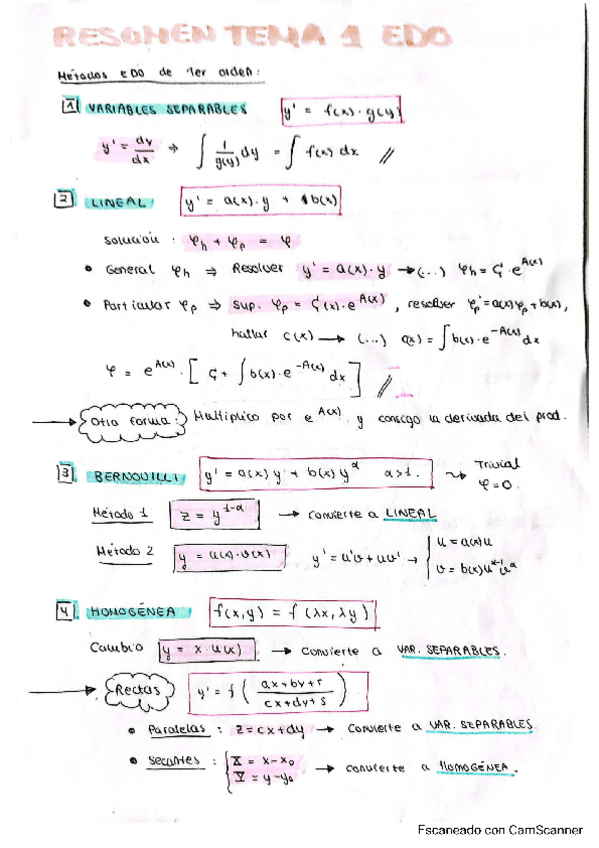 RESUMEN TEMA 1 EDO
Métodos EDO de 1er orden:
1 VARIABLES SEPARABLES y' = f(x)·g(y)
y' = dy/dx ⇒ ∫ 1/g(y) dy = ∫ f(x) dx //
2 LINEAL y' = a(x)·y + b(x)
Solución : φh + φp = φ
• General φh ⇒ Resolver y' = a(x)·y → (...) φh = C·e^A(x)
• Particular φp ⇒ sup. φp = C(x)·e^A(x), resolver φp' = a(x)φp + b(x),
hallar c(x) → (...) c(x) = ∫ b(x)·e^-A(x) dx
φ = e^A(x) · [ C + ∫ b(x)·e^-A(x) dx ] //
→ Otra forma: Multiplico por e^A(x) y consigo la derivada del prod.
3 BERNOUILLI y' = a(x)y + b(x)y^α α>1. ⇝ Trivial
φ=0.
Método 1 z = y^1-α → convierte a LINEAL
Método 2 y = u(x)·v(x) y' = u'v + uv' → { u = a(x)u
v = b(x)u^α-1 v^α
4 HOMOGÉNEA f(x,y) = f(λx,λy)
Cambio y = x·u(x) → convierte a VAR. SEPARABLES.
→ Rectas y' = f ( ax+by+r / cx+dy+s )
• Paralelas : z=cx+dy → convierte a VAR. SEPARABLES.
• Secantes : { X = x-x₀
Y = y-y₀ → convierte a HOMOGÉNEA.
Escaneado con CamScanner